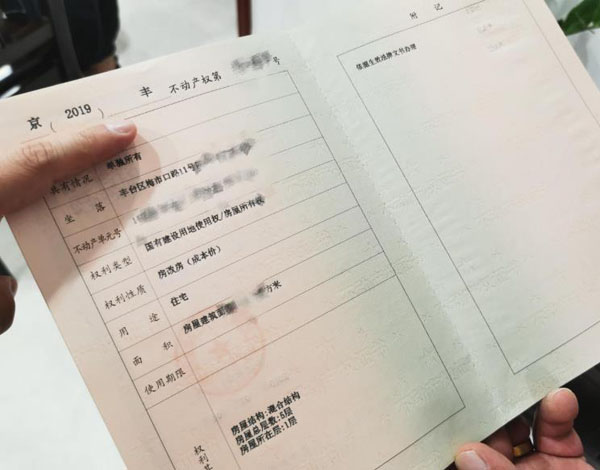 京(2019) 丰 不动产权第 号
附 记
依据生效法律文书办理
共有情况 单独所有
坐 落 丰台区梅市口路11号
不动产单元号
权利类型 国有建设用地使用权/房屋所有权
权利性质 房改房（成本价）
用 途 住宅
面 积 房屋建筑 方米
使用期限
房屋结构:混合结构
房屋总层数:5层
房屋所在层:1层
权利其